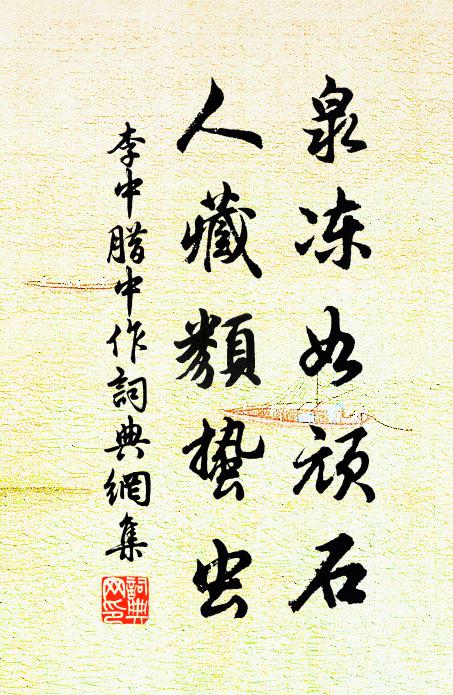 泉冻如顽石
人藏類蛰虫
李中腊中作詞典網集
詞典
网印